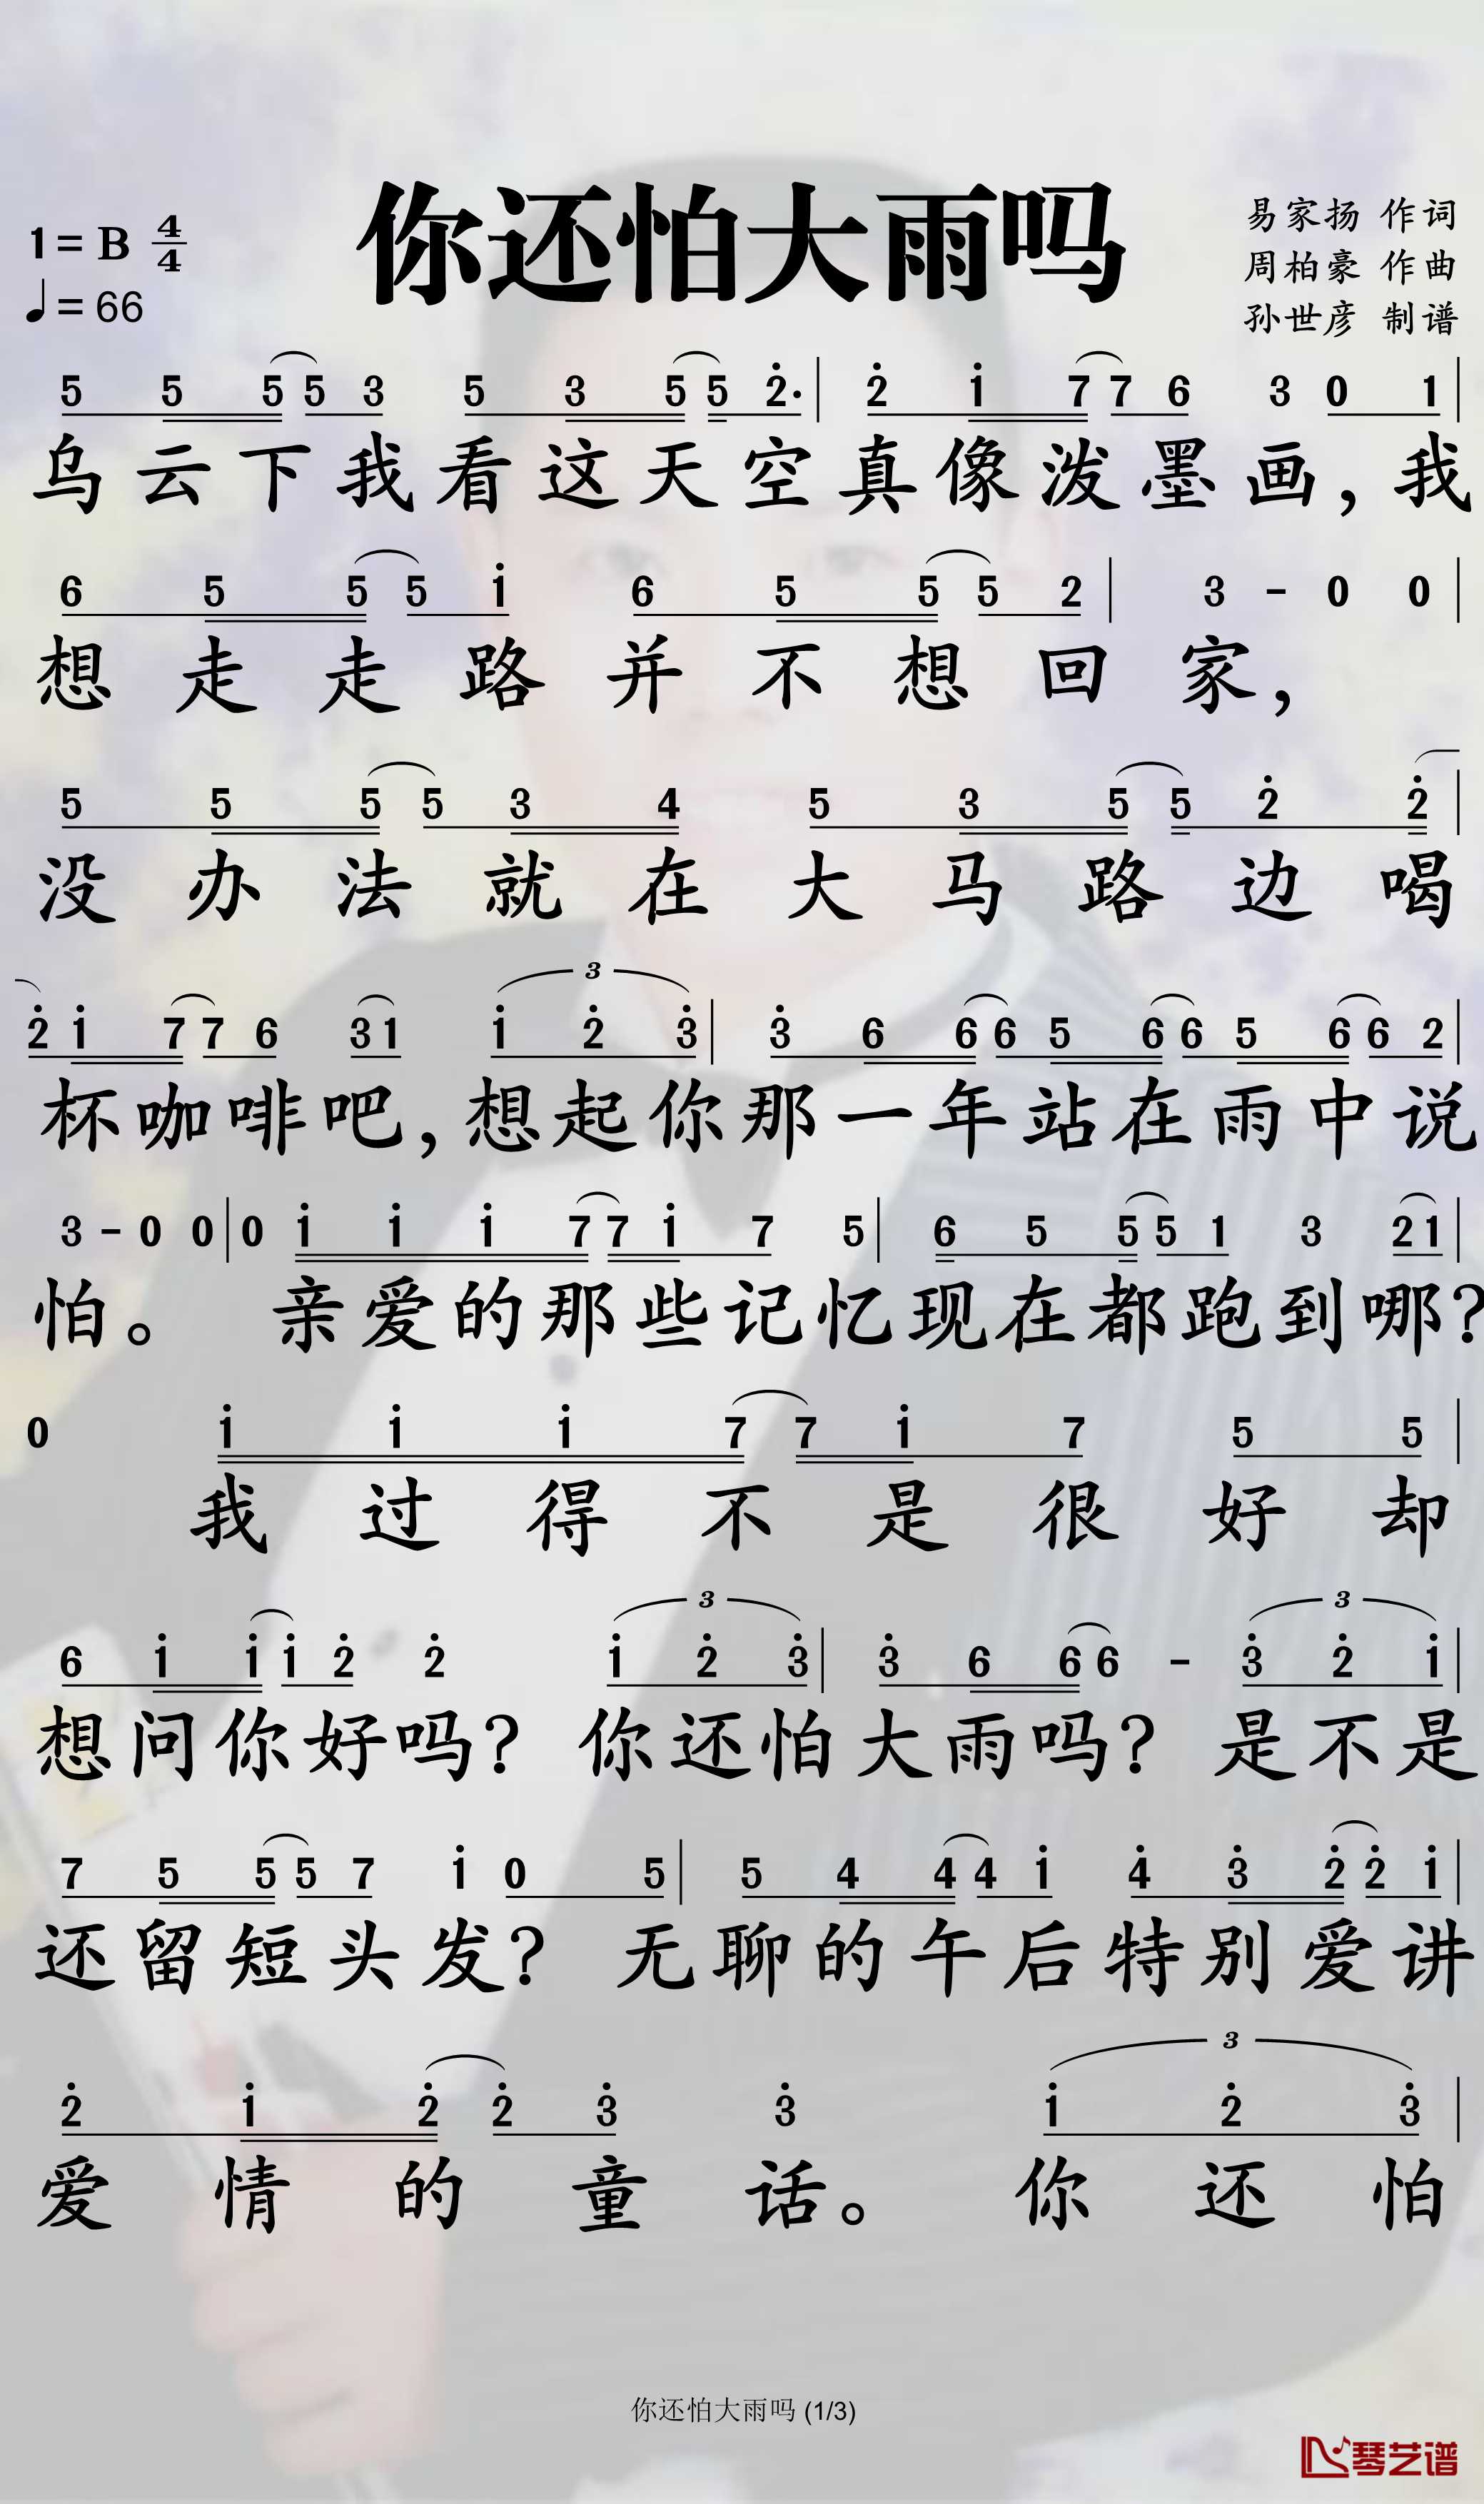 你还怕大雨吗
1= B 4/4
♩= 66
易家扬 作词
周柏豪 作曲
孙世彦 制谱
5 5 5 5 3 5 3 5 5 2̇· | 2̇ 1̇ 7 7 6 3 0 1 |
乌云下我看这天空真像泼墨画，我
6 5 5 5 1̇ 6 5 5 5 2 | 3 - 0 0 |
想走走路并不想回家，
5 5 5 5 3 4 5 3 5 5 2̇ 2̇ |
没办法就在大马路边喝
2̇ 1̇ 7 7 6 3 1 1̇ 2̇ 3̇ | 3̇ 6 6 6 5 6 6 5 6 6 2 |
3
杯咖啡吧，想起你那一年站在雨中说
3 - 0 0 | 0 1̇ 1̇ 1̇ 7 7 1̇ 7 5 | 6 5 5 5 1 3 2 1 |
怕。亲爱的那些记忆现在都跑到哪？
0 1̇ 1̇ 1̇ 7 7 1̇ 7 5 5 |
我过得不是很好却
3 3
6 1̇ 1̇ 1̇ 2̇ 2̇ 1̇ 2̇ 3̇ | 3̇ 6 6 6 - 3̇ 2̇ 1̇ |
想问你好吗？你还怕大雨吗？是不是
7 5 5 5 7 1̇ 0 5 | 5 4 4 4 1̇ 4̇ 3̇ 2̇ 2̇ 1̇ |
还留短头发？无聊的午后特别爱讲
3
2̇ 1̇ 2̇ 2̇ 3̇ 3̇ 1̇ 2̇ 3̇ |
爱情的童话。你还怕
你还怕大雨吗 (1/3)
琴艺谱